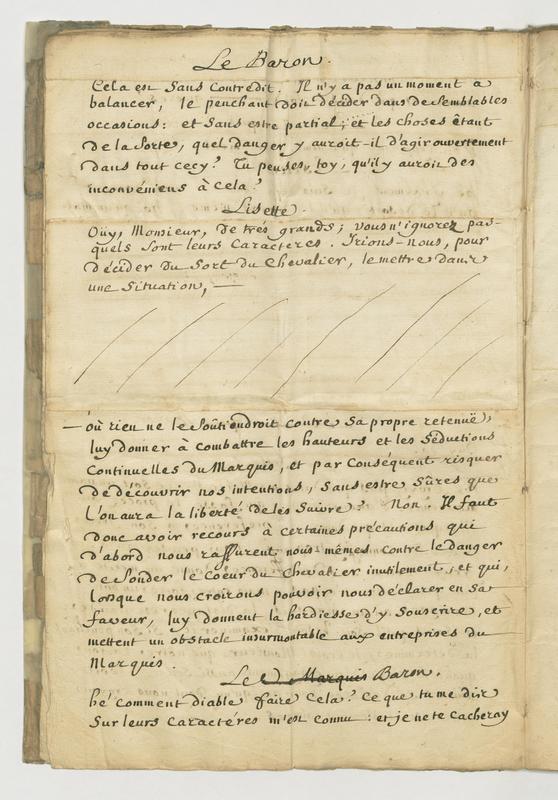 Le Baron.
Cela est sans contredit. Il n'y a pas un moment a
balancer, le penchant doit décider dans de semblables
occasions: et sans estre partial, et les choses étant
de la sorte, quel danger y auroit-il d'agir ouvertement
dans tout cecy? Tu penses, toy, qu'il y auroit des
inconvéniens à cela?
Lisette.
Oüy, Monsieur, de très grands; vous n'ignorez pas-
quels sont leurs caracteres. Irions-nous, pour
décider du sort du Chevalier, le mettre dans
une situation, —
— où rien ne le soûtiendroit contre sa propre retenuë,
luy donner à combattre les hauteurs et les séductions
continuelles du Marquis, et par conséquent risquer
de découvrir nos intentions, sans estre sûres que
l'on aura la liberté de les suivre? Non. Il faut
donc avoir recours à certaines précautions qui
d'abord nous rassurent nous-mêmes contre le danger
de sonder le coeur du Chevalier inutilement, et qui,
lorsque nous croirons pouvoir nous déclarer en sa
faveur, luy donnent la hardiesse d'y souscrire, et
mettent un obstacle insurmontable aux entreprises du
Marquis.
Le Marquis Baron.
hé comment diable faire cela? Ce que tu me dis
sur leurs caractéres m'est connu: et je ne te cacheray